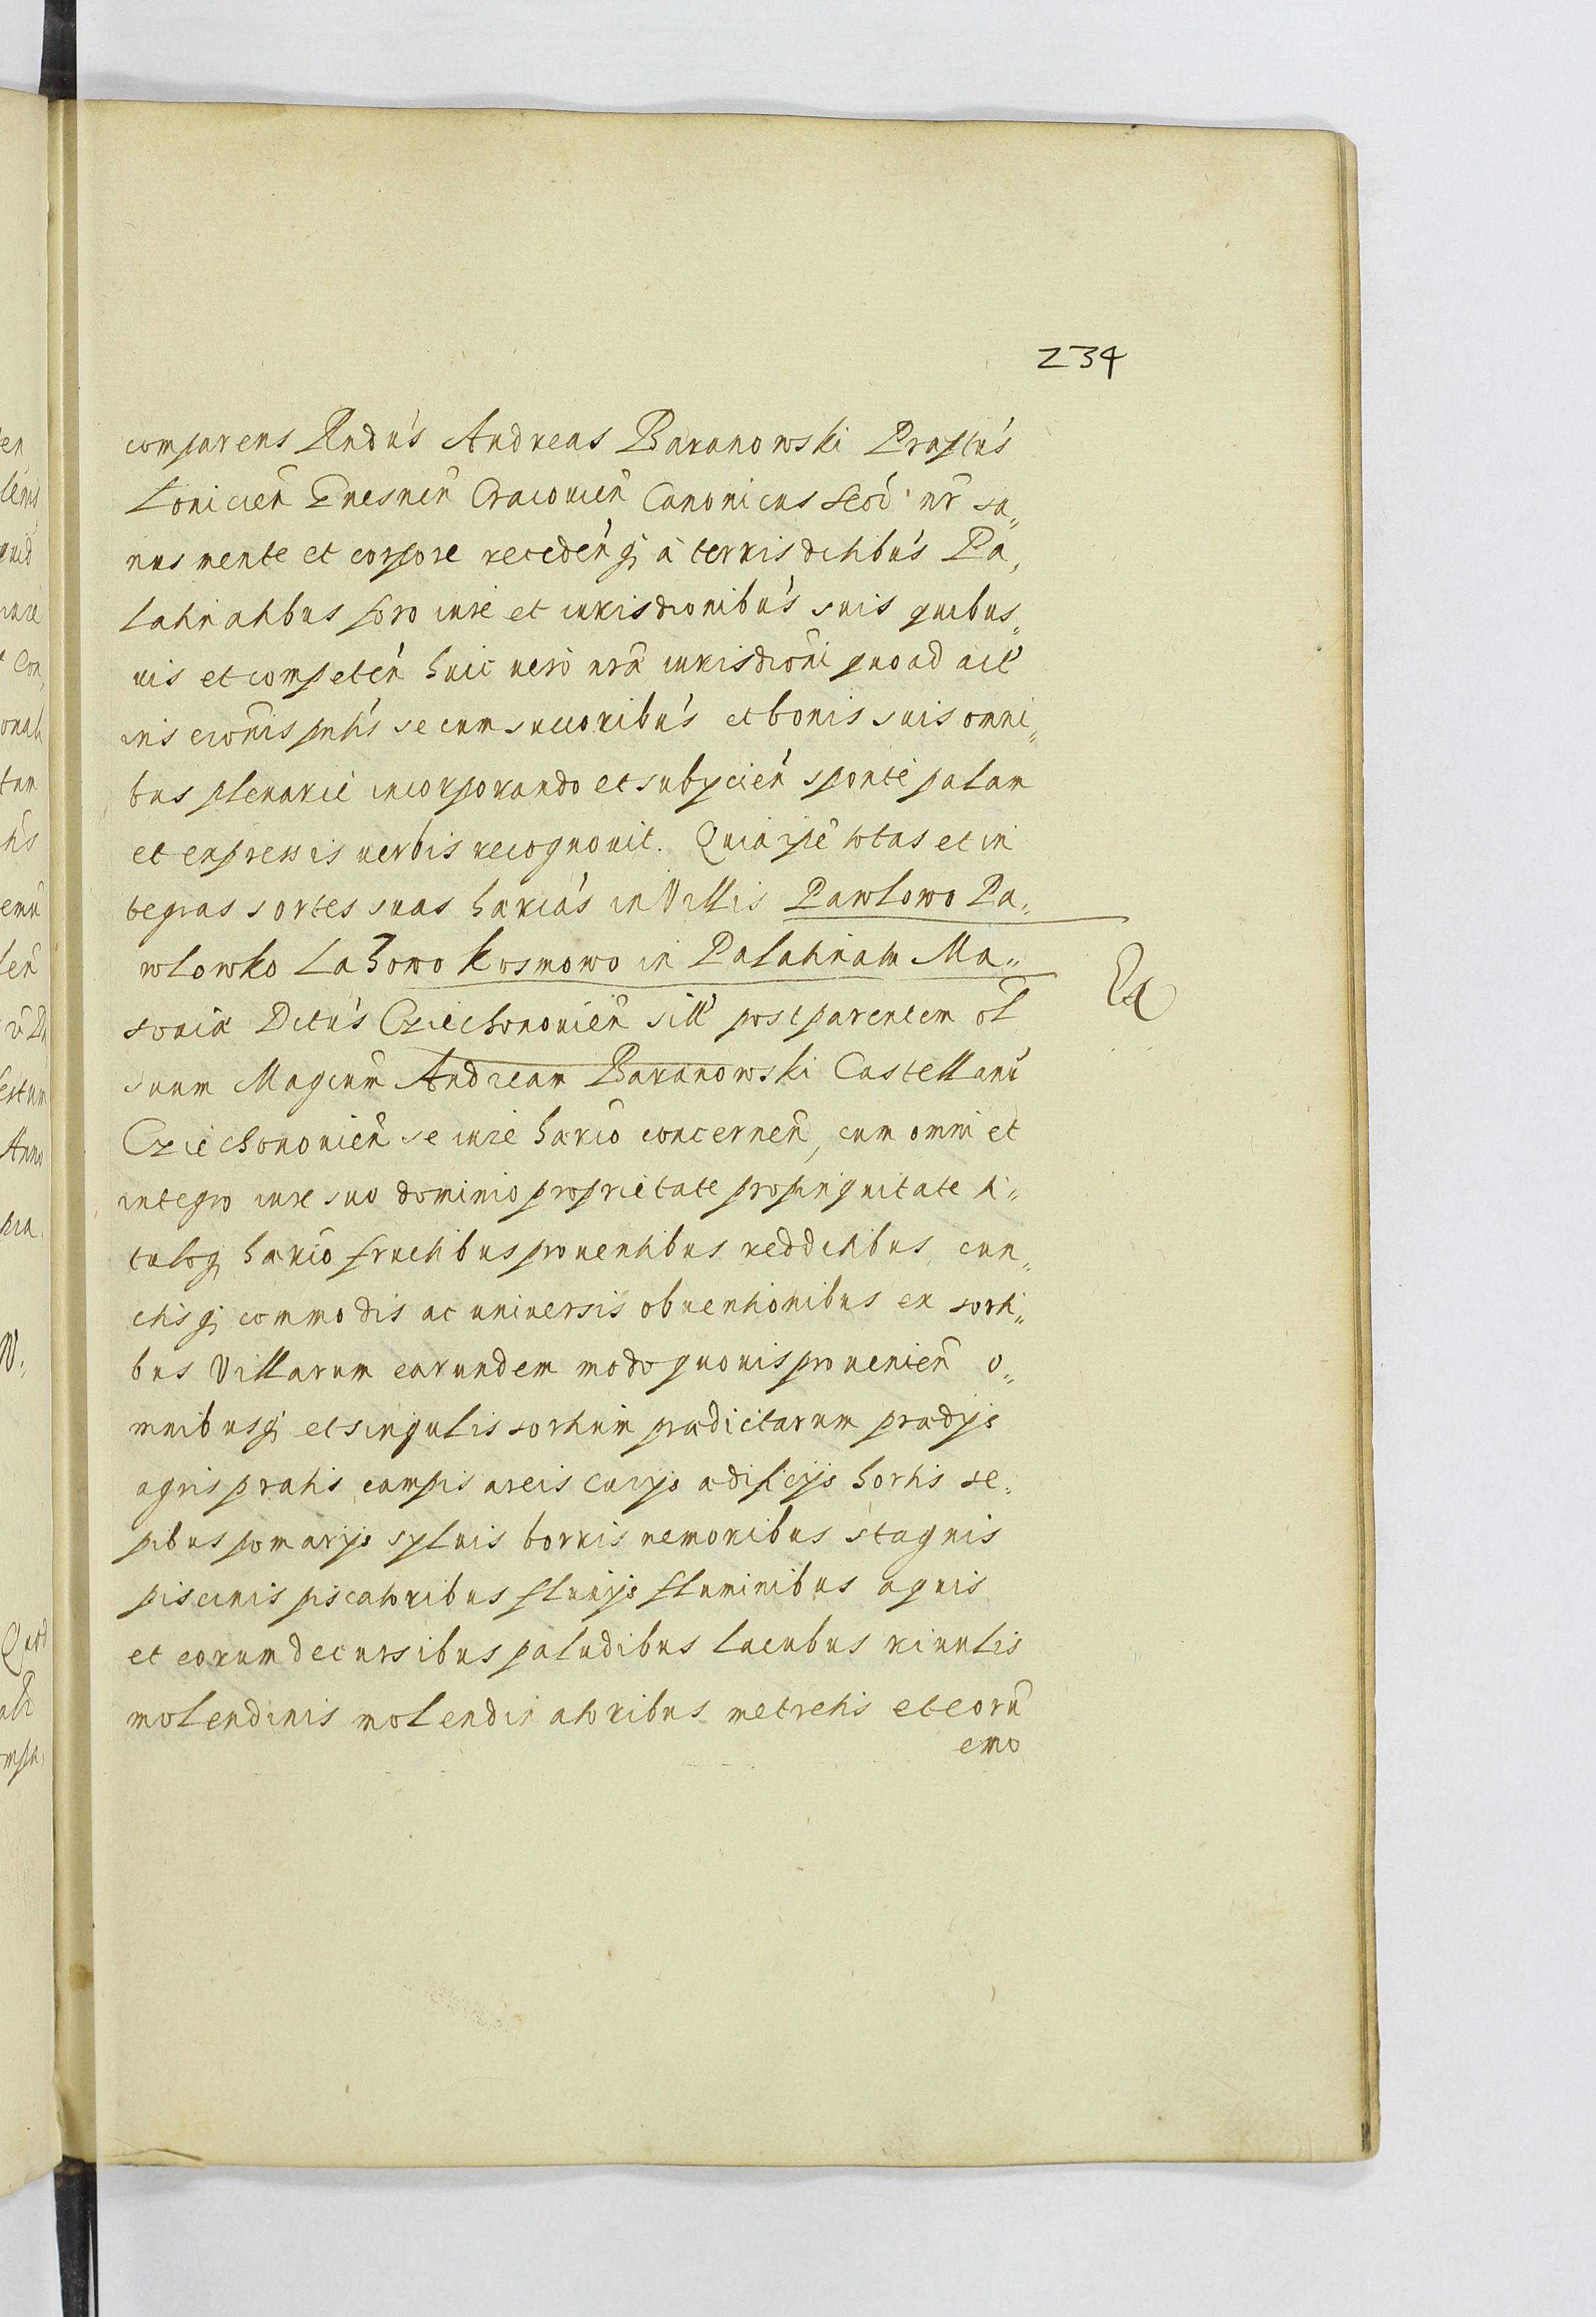 234
comparens Rndus Andreas Baranowski Præptus
Lonicieñ Gnesneñ Cracouieñ Canonicus Scõd nr̃ sa„
nus mente et corpore recedeńq̧ à terris ditibus Pa„
latinatibus foro iure et iurisdionibus suis quibus„
uis et competeń huic uerò nrã iurisdioñi quoad act̃
ins cionis pnti's se cum sucoribus et bonis suis omni„
bus plenariè incorporando et subijcień sponte palam
et expressis uerbis recognouit. Quia ipẽ totas et in
tegras sortes suas hærias in Villis Pawlowo Pa„
wlowko Lazowo Kosmowo in Palatinatu Ma„
souiæ Dctu's Cziechonouień sitt' post parentem ol̃
suum Magcum Andream Baranowski Castellanũ
Cziechonouień se iure hærio concerneñ, cum omni et
integro iure suo dominio proprietate propinquitate ti„
tuloq̧ hærio fructibus prouentibus redditibus cun„
ctisq̧ commodis ac uniuersis obuentionibus ex sorti„
bus Villarum earundem modo quouis prouenień o„
mnibusq̧ et singulis sortium prædictarum prædijs
agris pratis campis areis curijs ædificijs hortis se„
pibus pomarijs syluis borris nemoribus stagnis
piscinis piscatoribus fluuijs fluminibus aquis
et eorum decursibus paludibus lacubus riuulis
molendinis molendinatoribus metretis et eorũ
emo